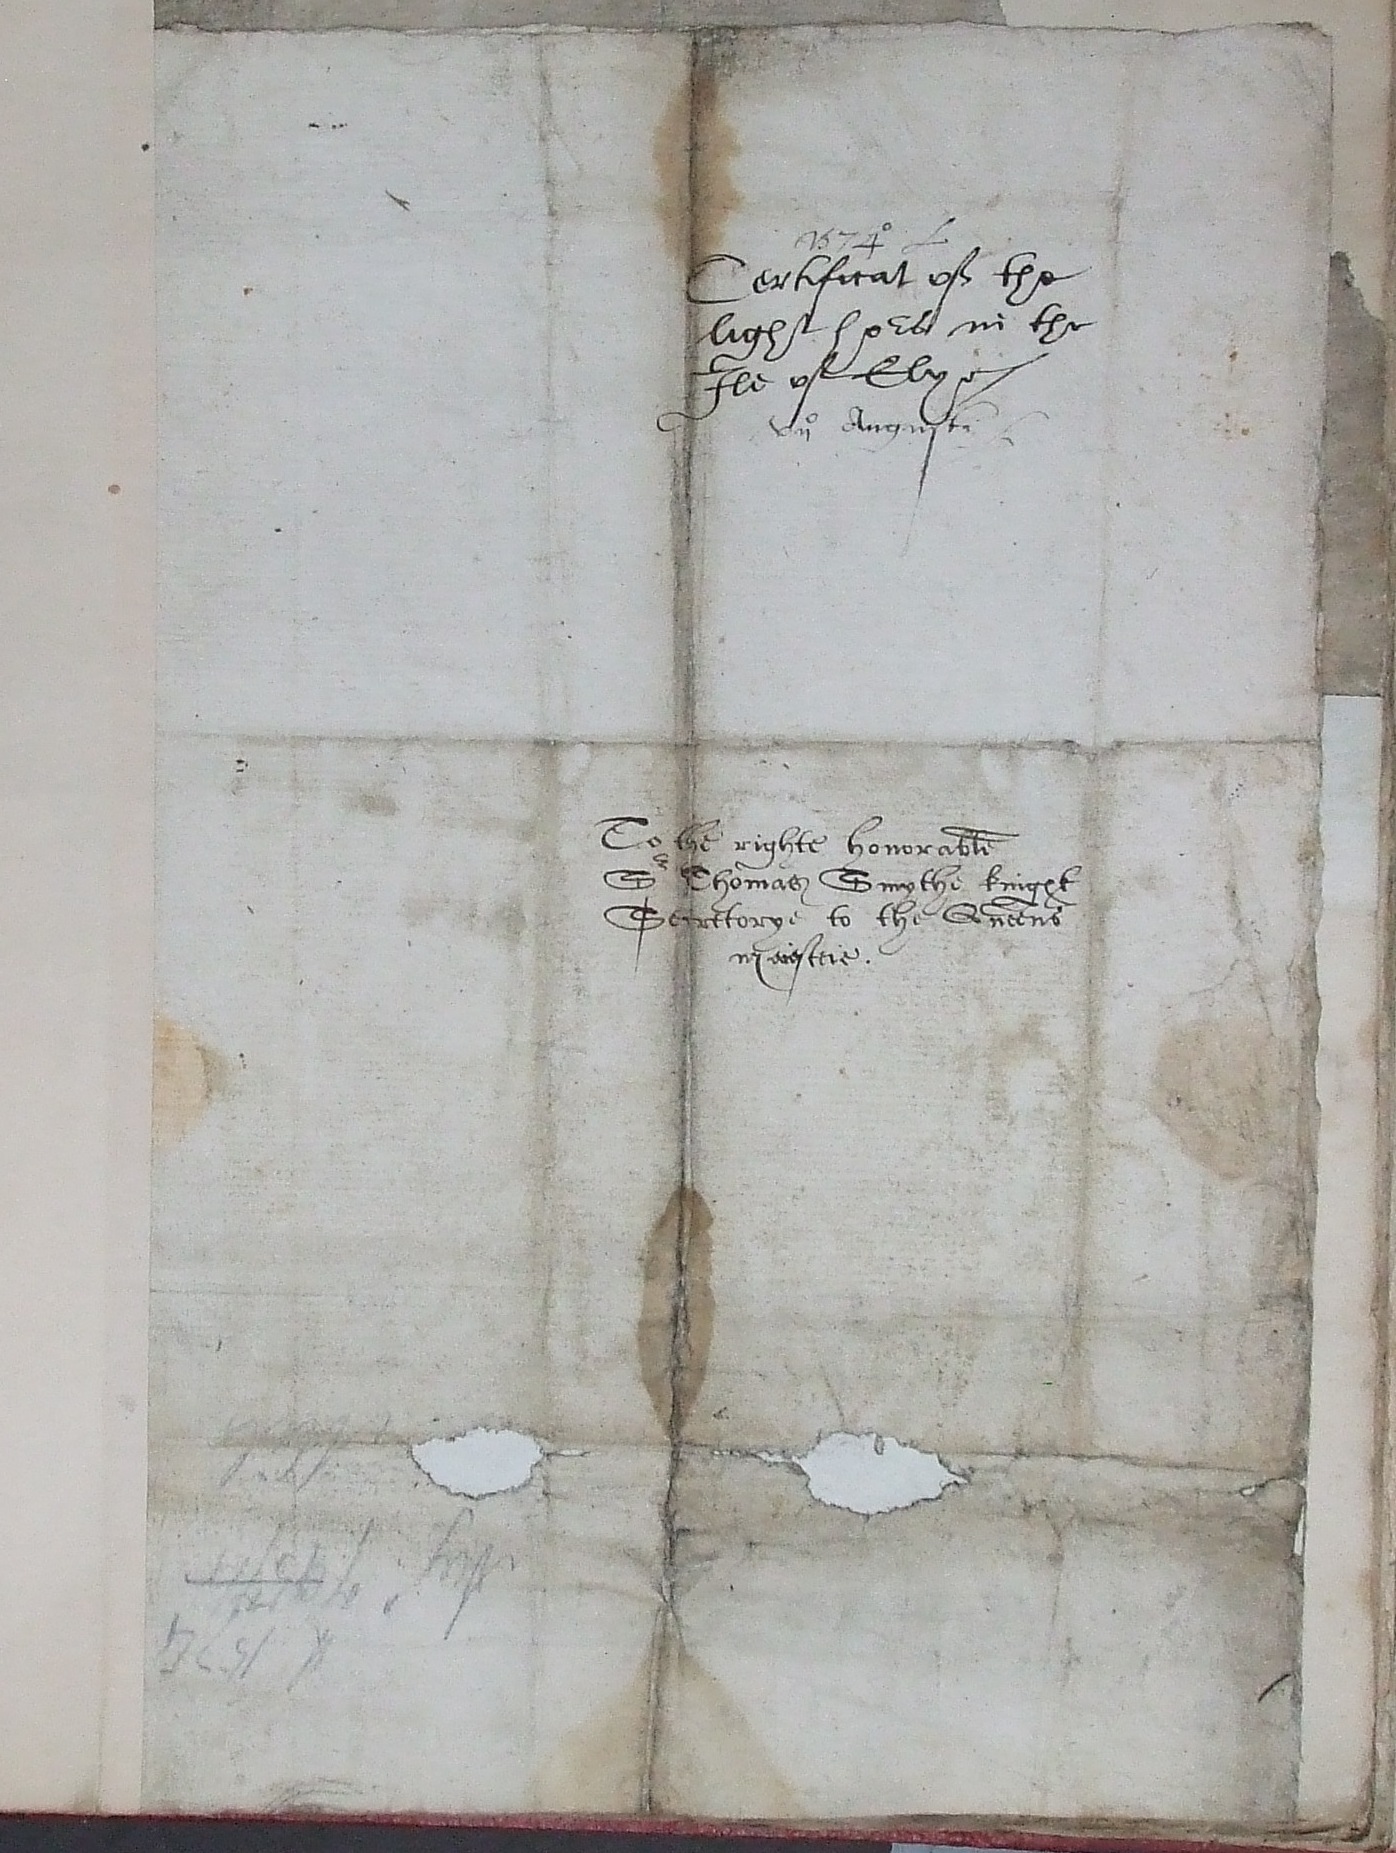 1574°
Certificat of the
light hors in the
Ile of Elye
vij° Augusti
To the righte honorable
Sr Thomas Smythe knight
Secretorye to the Queens
maiestie.
1574